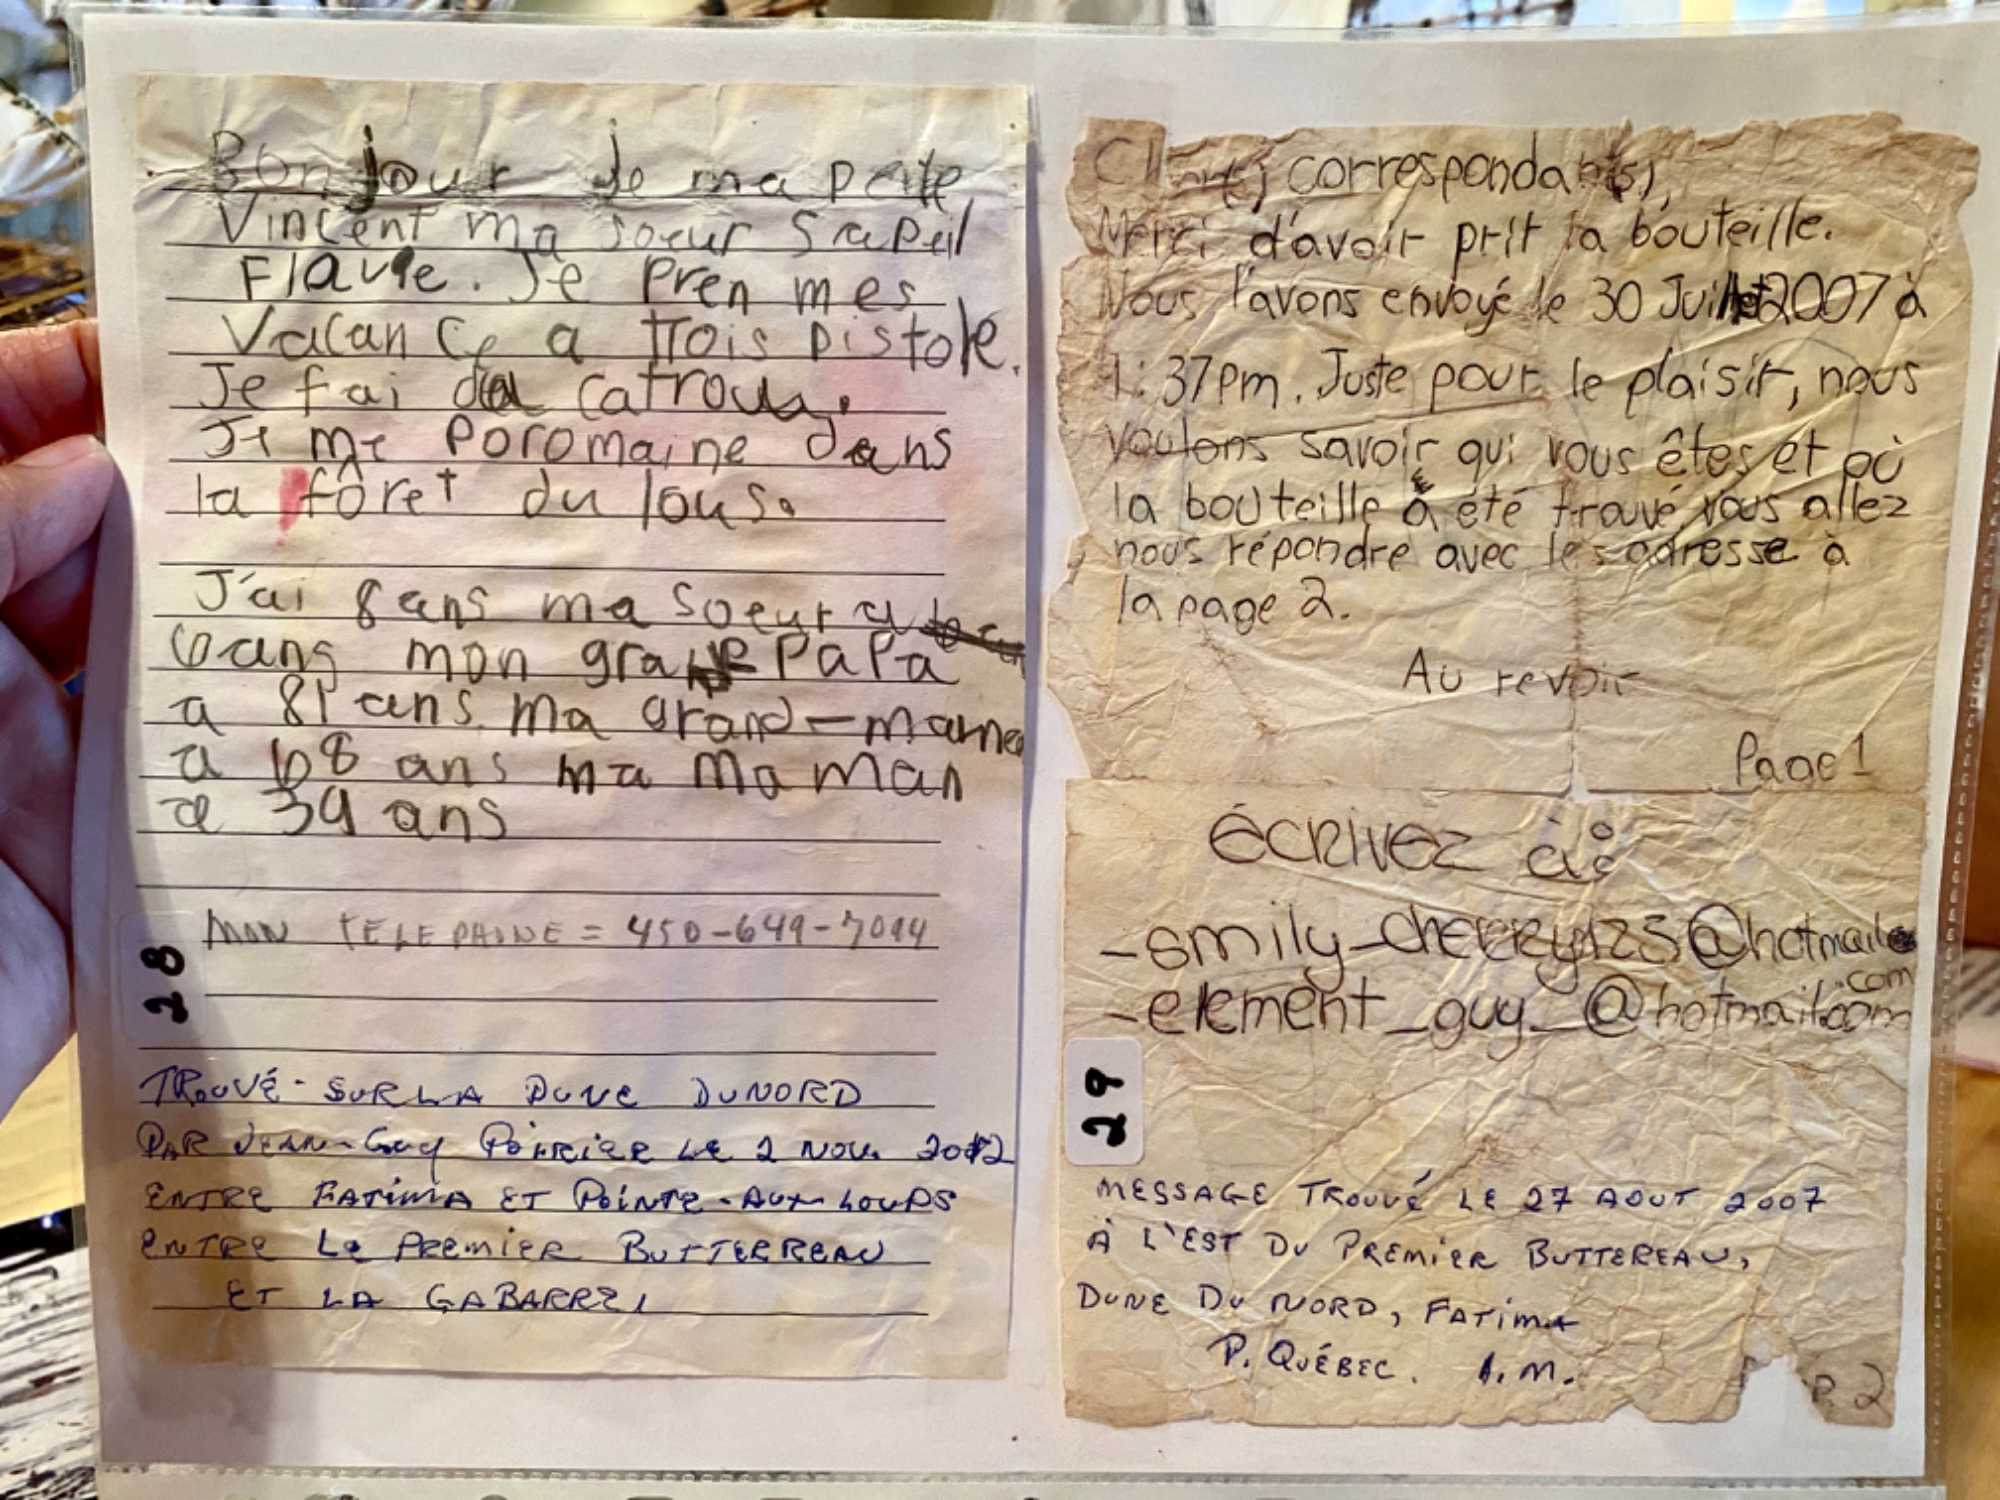 Bonjour je ma pelle
Vincent ma soeur sapell
Flavie. Je pren mes
Vacance a trois pistole.
Je fai du catrou.
Je me poromaine dans
la fôret du lous.
J'ai 8 ans ma soeur a
6 ans mon gran papa
a 81 ans ma grand-mama
a 68 ans ma maman
a 39 ans
MON TELEPHONE = 450-649-7094
28
TROUVÉ SUR LA DUNE DU NORD
PAR JEAN-Guy POIRIER LE 2 NOV. 2012
ENTRE FATIMA ET POINTE-AUX-LOUPS
ENTRE Le PREMIER BUTTERREAU
ET LA GABARRE
correspondant(s),
Merci d'avoir prit la bouteille.
Nous l'avons envoyé le 30 Juillet 2007 à
1:37pm. Juste pour le plaisir, nous
voulons savoir qui vous êtes et où
la bouteille à été trouvé, vous allez
nous répondre avec les adresse à
la page 2.
Au revoir
Page 1
ÉCRIVEZ à:
-smily-cherry125@hotmail.com
-element_guy_@hotmail.com
29
MESSAGE TROUVÉ LE 27 AOUT 2007
À L'EST DU PREMIER BUTTEREAU,
DUNE DU NORD, FATIMA
P. QUÉBEC. I.M.
P. 2